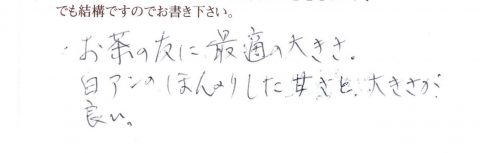 でも結構ですのでお書き下さい。
・お茶の友に最適の大きさ。
白アンのほんのりした甘さと、大きさが
良い。